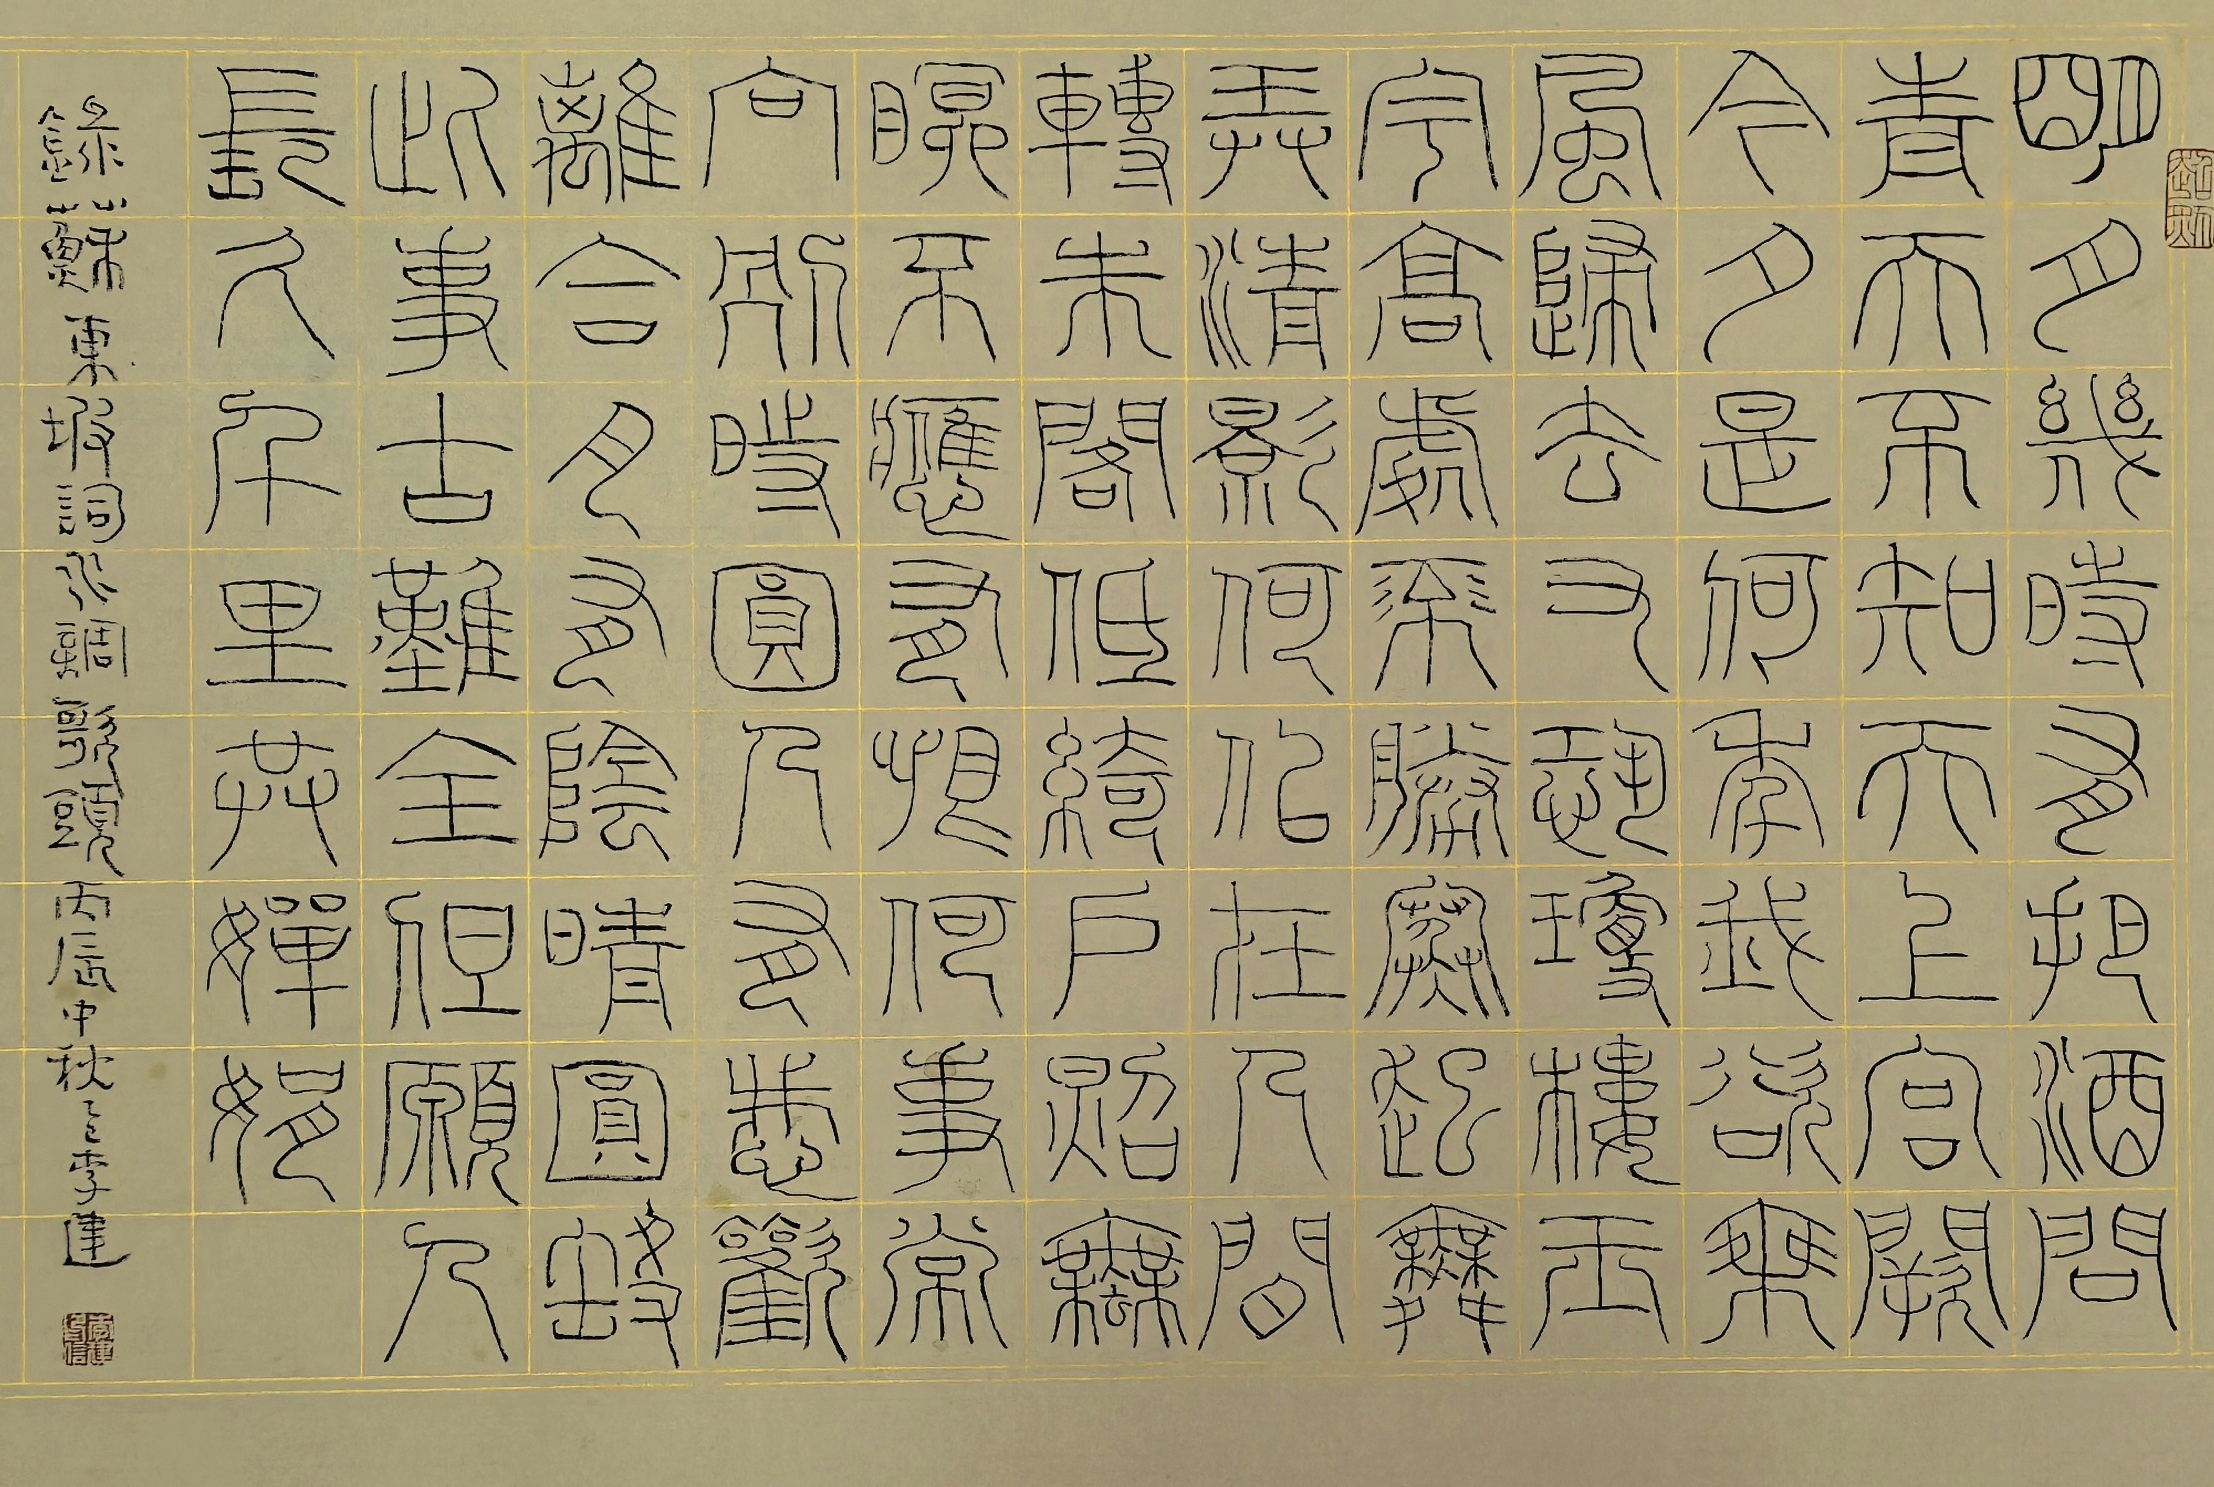 明月幾時有把酒問
青天不知天上宮闕
今夕是何年我欲乘
風歸去又恐瓊樓玉
宇高處不勝寒起舞
弄清影何似在人間
轉朱閣低綺戶照無
瞑不應有恨何事常
向別時圓人有悲歡
離合月有陰晴圓缺
此事古難全但願人
長久千里共嬋娟
錄蘇東坡詞水調歌頭丙辰中秋李建